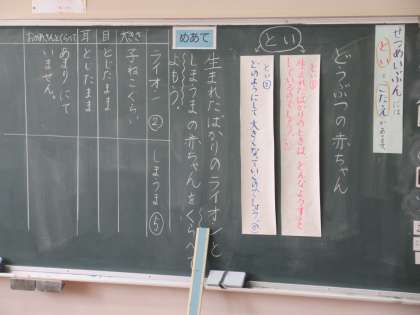 せつめいぶん には
とい と こたえ があります。
どうぶつの赤ちゃん
とい
とい①
生まれたばかりのときは、どんなようすを
しているのでしょう。
とい②
どのようにして、大きくなっていくのでしょう。
めあて
生まれたばかりのライオンと
しまうまの赤ちゃんをくらべて
よもう。
ライオン ② しまうま ⑤
大きさ 子ねこくらい
目 とじたまま
耳 とじたまま
おかあさんとくらべて
あまりにて
いません。